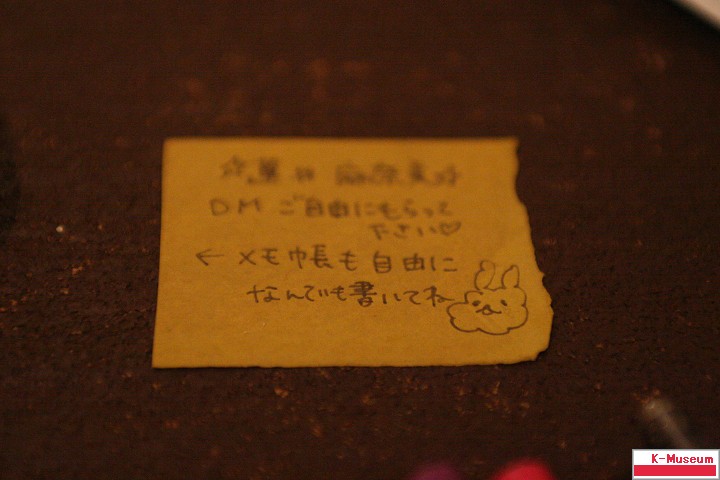 DM ご自由にもらって
下さい♡
← メモ帳も自由に
なんでも書いてね
K-Museum